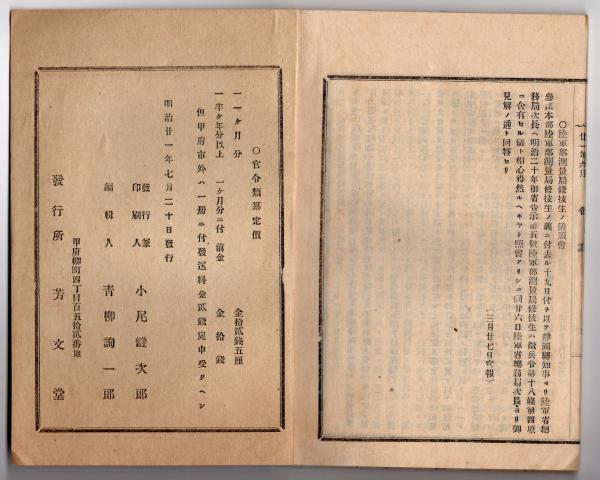 廿一年六月
○陸軍部測量局修技生ノ儀照會
參謀本部陸軍部測量局修技生ノ義ニ付去ル十九日付ヲ以テ靜岡縣知事ヨリ陸軍省總
務局次長ヘ明治二十年御省告示第五號陸軍部測量局修技生ハ徵兵令第十八條第四項
ニ含有セル儀ト相心得然ルヘキヤト照會アリシニ同廿六日陸軍省總務局次長ヨリ御
見解ノ通ト回答セリ
(三月廿七日官報)
○官令類纂定價
一一ケ月分 金拾貳錢五厘
一半ケ年分以上 一ケ月分ニ付 前金 金拾錢
但甲府市外ハ一册ニ付發送料金貳錢宛申受クヘシ
明治廿一年七月二十日發行
發行兼印刷人 小尾縫次郎
編輯人 青柳詢一郎
甲府柳町四丁目百五拾貳番地
發行所 芳文堂